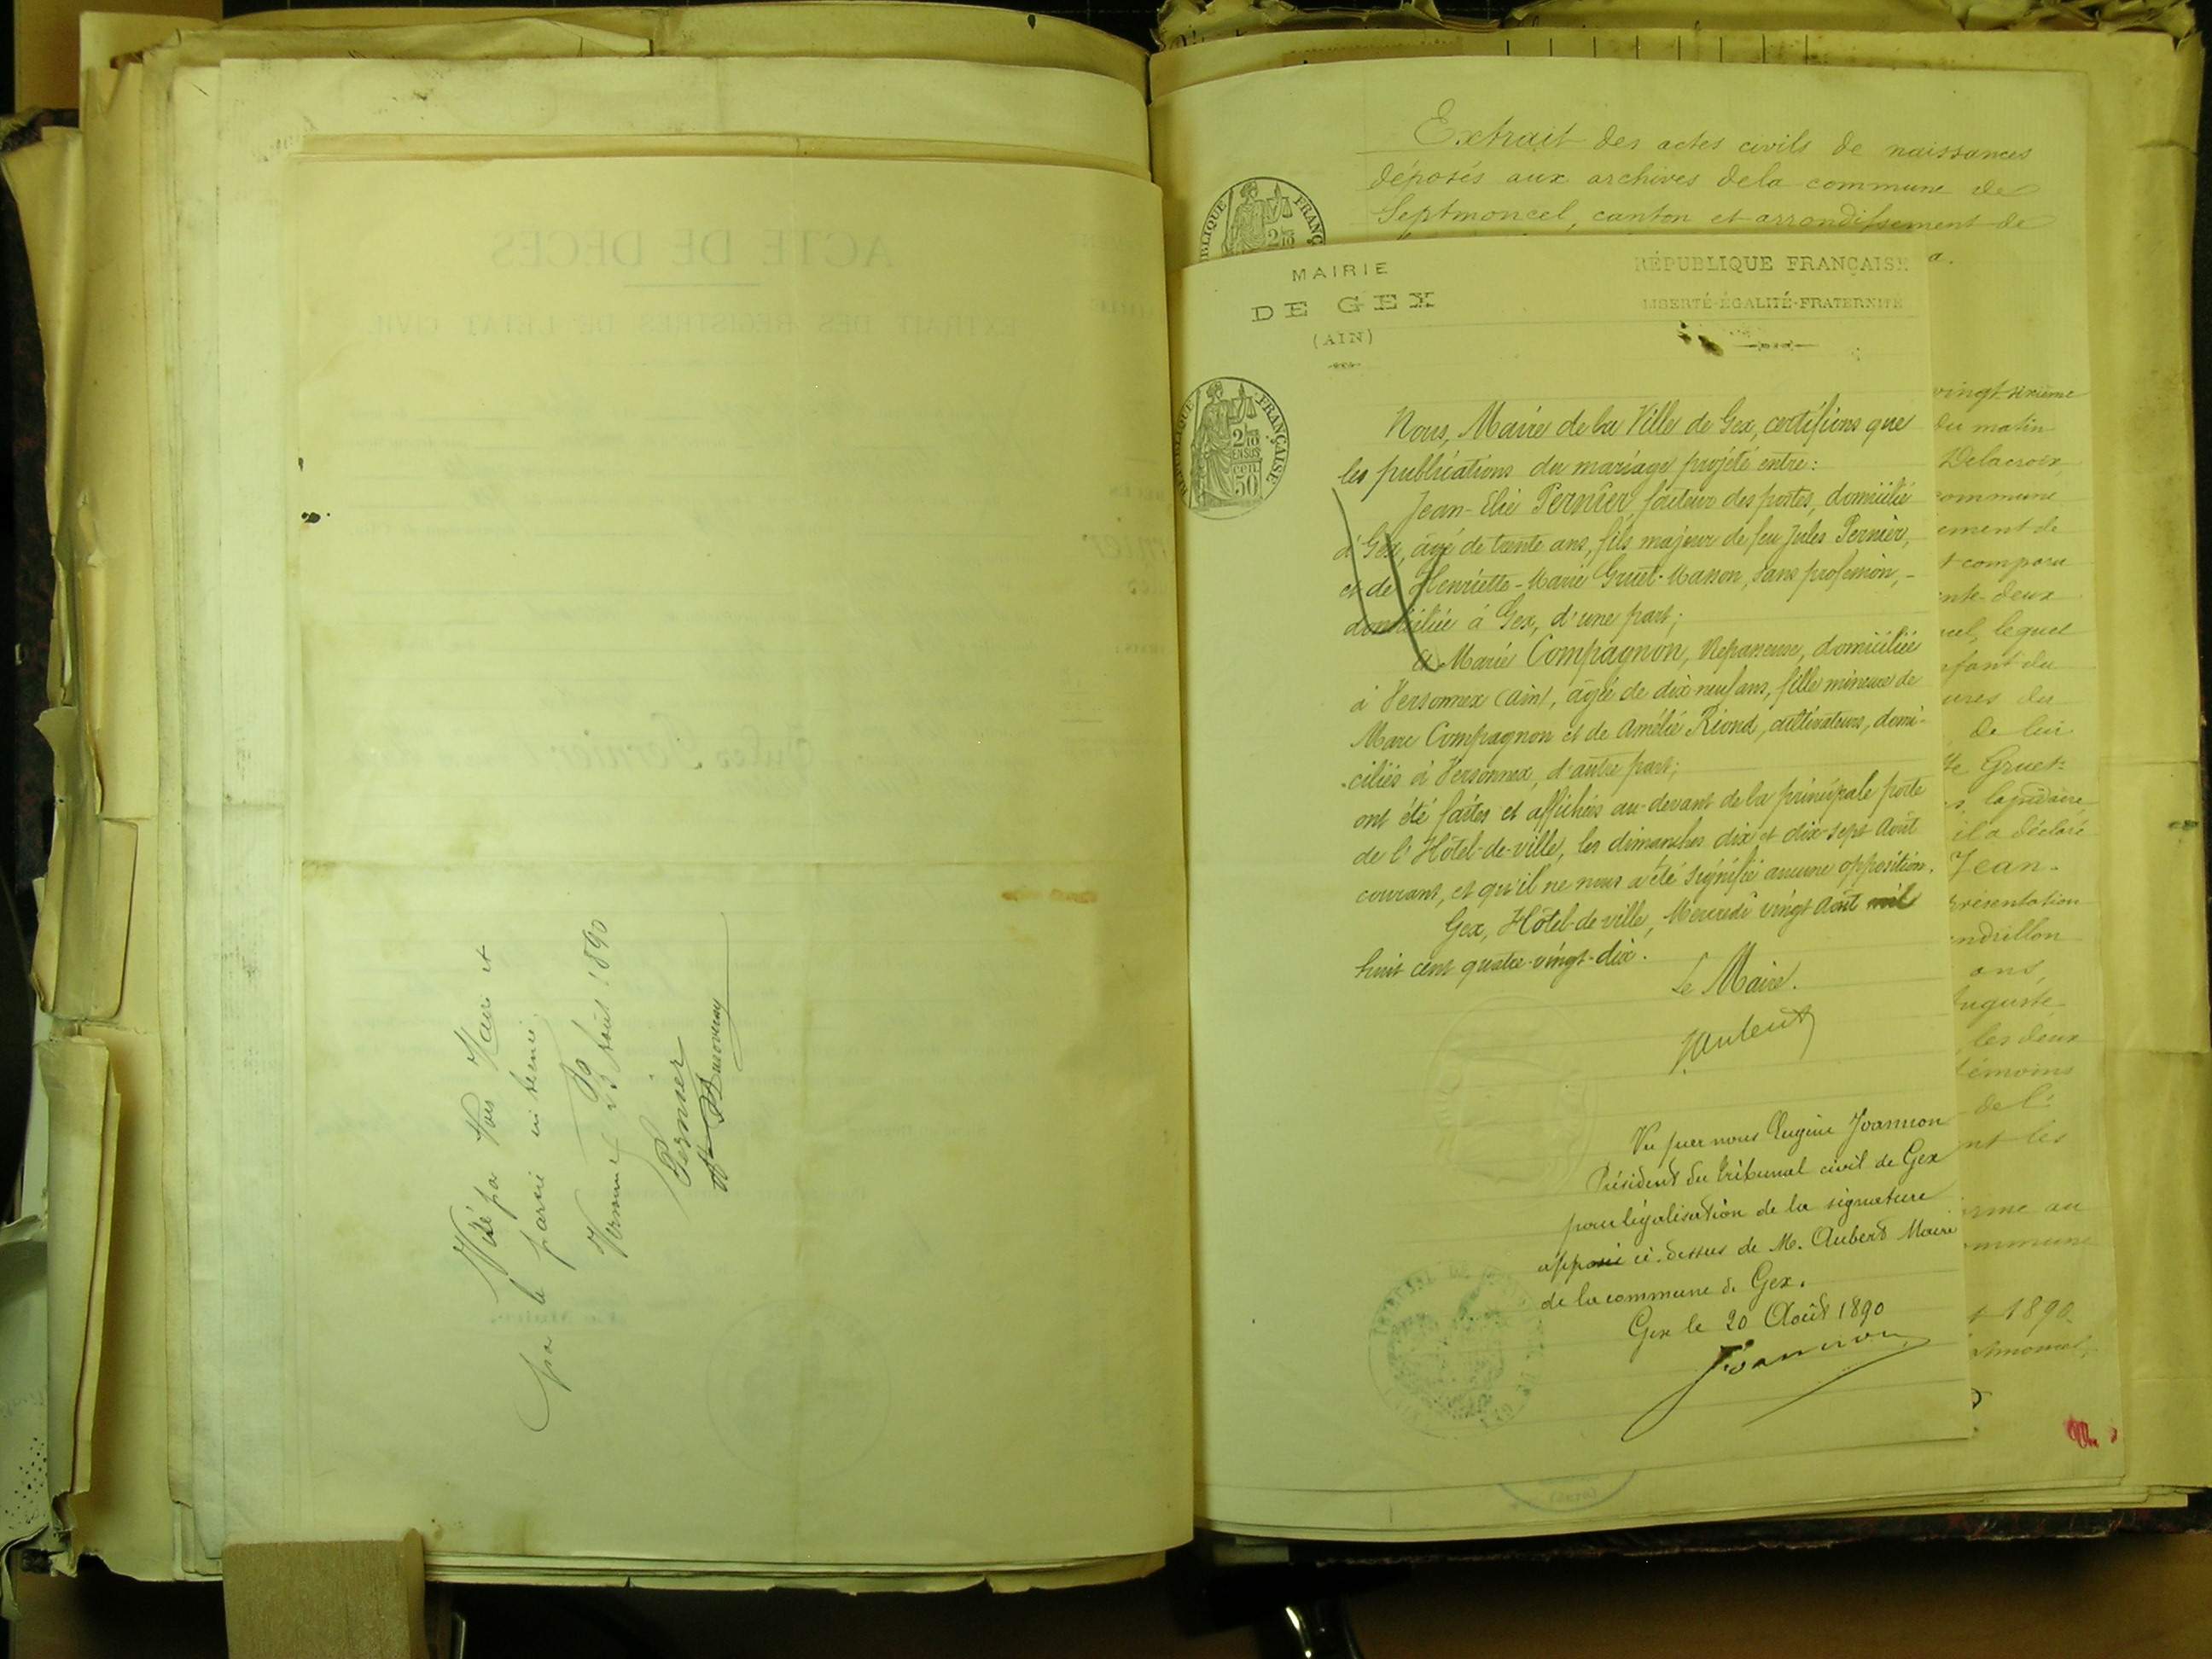 Visé par Nous Maire et
par la partie intéressée
Versonnex 23 Août 1890
Pernier
Extrait des actes civils de naissances
déposés aux archives de la commune de
Septmoncel, canton et arrondissement de
MAIRIE
DE GEX
(AIN)
RÉPUBLIQUE FRANÇAISE
LIBERTÉ-ÉGALITÉ-FRATERNITÉ
Nous, Maire de la Ville de Gex, certifions que
les publications du mariage projeté entre :
Jean-Elie Pernier, facteur des postes, domicilié
à Gex, âgé de trente ans, fils majeur de feu Jules Pernier,
et de Henriette-Marie Gruet-Masson, sans profession, -
domiciliée à Gex, d'une part ;
Et Marie Compagnon, Repasseuse, domiciliée
à Versonnex (Ain), âgée de dix-neuf ans, fille mineure de
Marc Compagnon et de Amélie Riond, cultivateurs, domi-
-ciliés à Versonnex, d'autre part ;
ont été faites et affichées au-devant de la principale porte
de l'Hôtel-de-ville, les dimanches dix et dix sept Août
courant, et qu'il ne nous a été signifié aucune opposition.
Gex, Hôtel-de-ville, Mercredi vingt Août mil
huit cent quatre-vingt-dix.
Le Maire.
Vu par nous Eugène Joannon
Président du tribunal civil de Gex
pour légalisation de la signature
apposée ci-dessus de M. Aubert Maire
de la commune de Gex.
Gex le 20 Août 1890
Joannon
RÉPUBLIQUE FRANÇAISE
2 10
EN SUS
cen
50
vingt-sixième
du matin
Delacroix
commune
ement de
t comparu
nte-deux
cel, lequel
nfant du
ures du
de lui
te Gruet-
s, lapidaire,
il a déclaré
Jean-
présentation
endrillon
ans,
Auguste
les deux
témoins
de l'
nt les
orme au
commune
t 1890